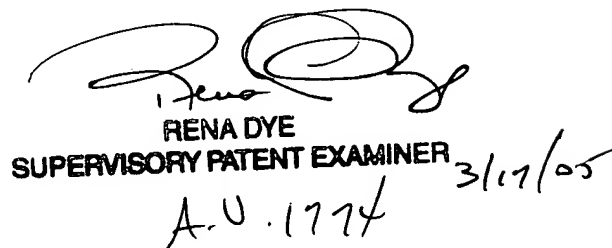 Rena Dye
RENA DYE
SUPERVISORY PATENT EXAMINER 3/17/05
A.U. 1774